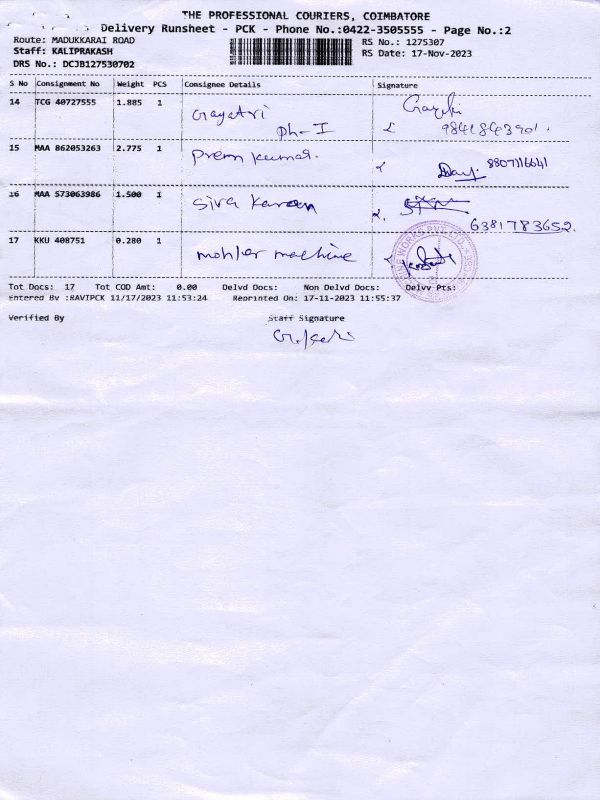 THE PROFESSIONAL COURIERS, COIMBATORE
Delivery Runsheet - PCK - Phone No.:0422-3505555 - Page No.:2
Route: MADUKKARAI ROAD RS No.: 1275307
Staff: KALIPRAKASH RS Date: 17-Nov-2023
DRS No.: DCJB127530702
S No Consignment No Weight PCS Consignee Details Signature
14 TCG 40727555 1.885 1 Gayatri Ph-I Gayatri 9841843901
15 MAA 862053263 2.775 1 Prem kumar. 8807116641
16 MAA 573063986 1.500 1 Siva 6381783652.
17 KKU 408751 0.280 1 mohler machine
Tot Docs: 17 Tot COD Amt: 0.00 Delvd Docs: Non Delvd Docs: Delvv Pts:
Entered By :RAVIPCK 11/17/2023 11:53:24 Reprinted On: 17-11-2023 11:55:37
Verified By Staff Signature